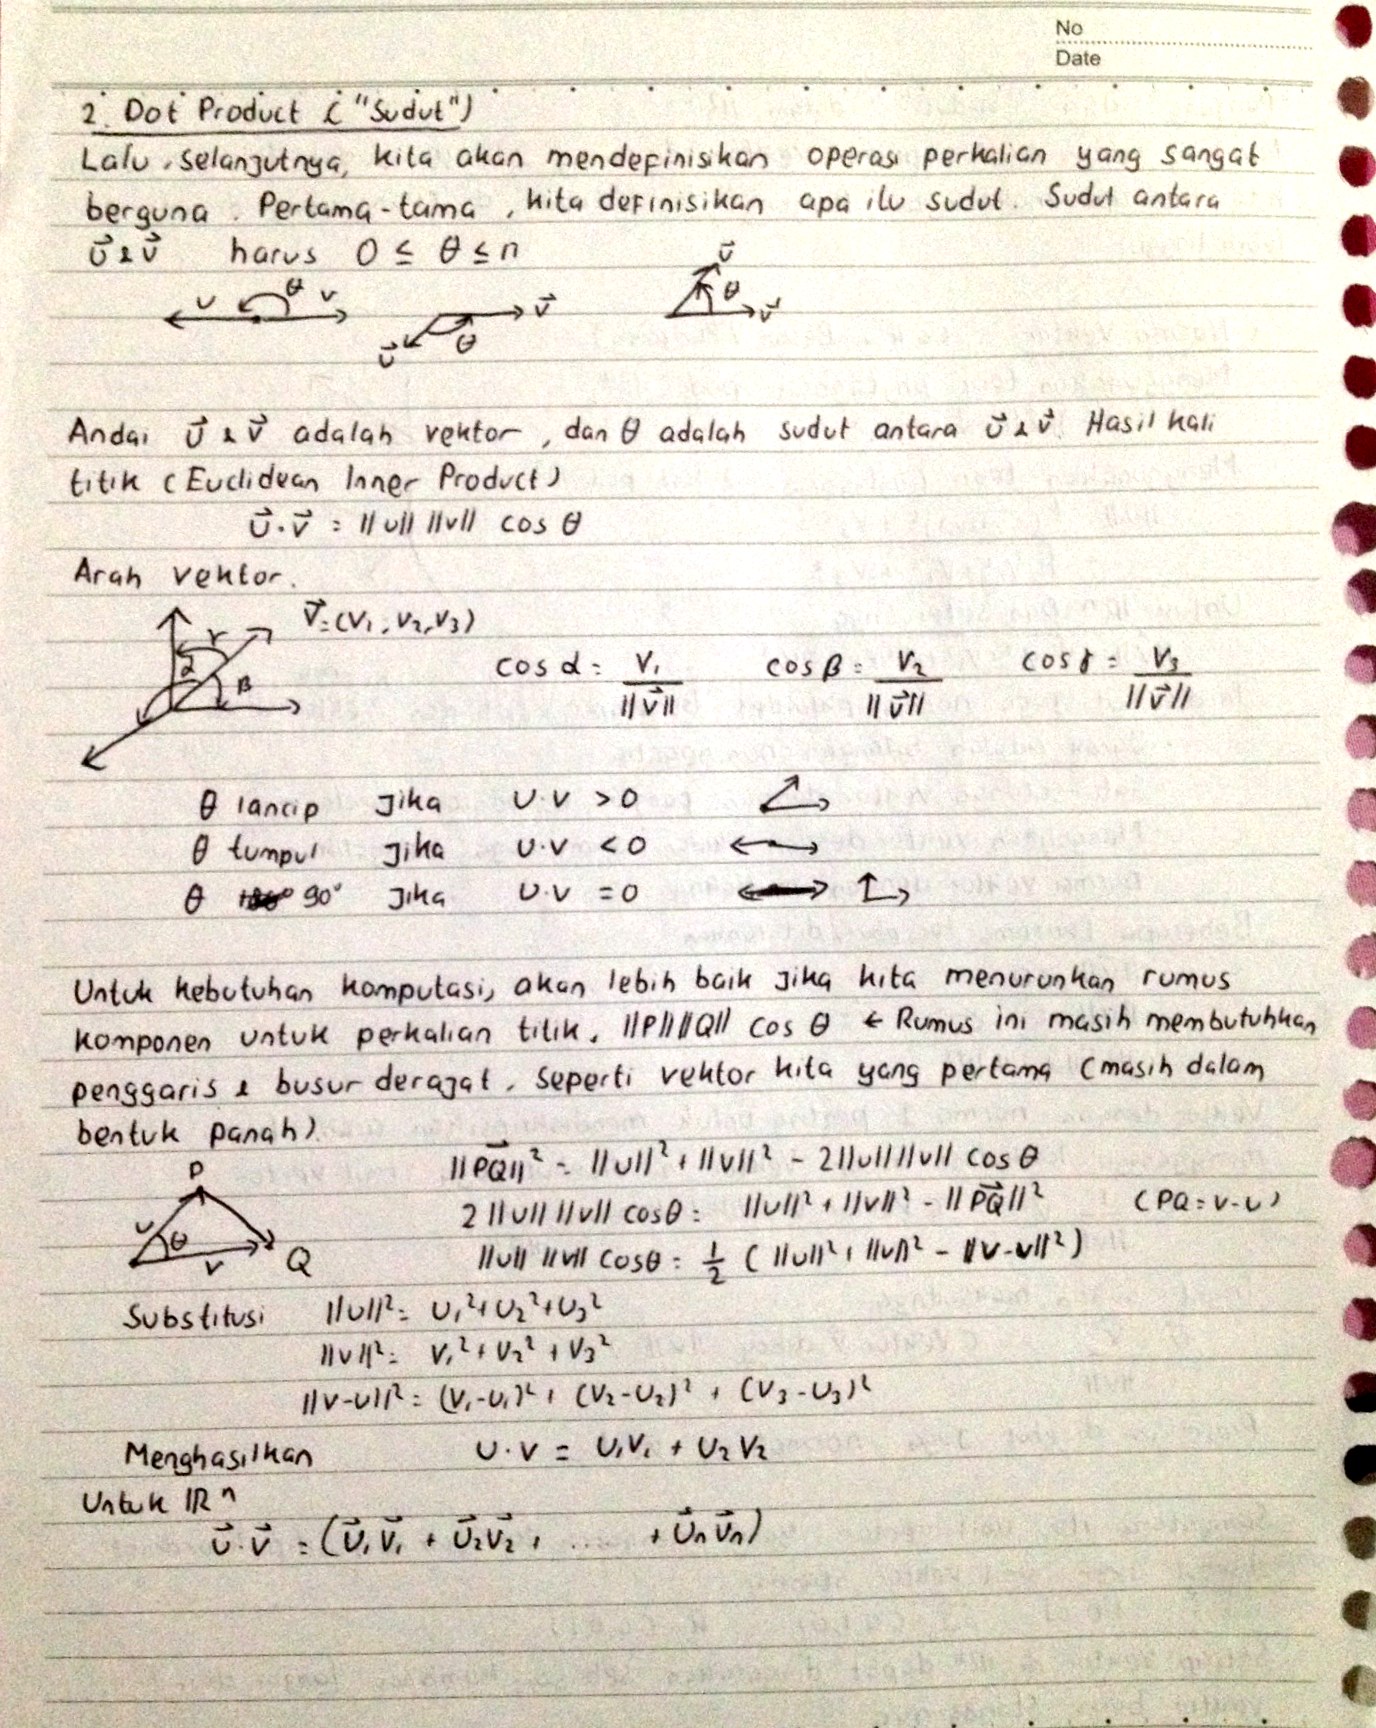 No
Date
2. Dot Product ("Sudut")
Lalu, selanjutnya, kita akan mendefinisikan operasi perkalian yang sangat
berguna. Pertama-tama, kita definisikan apa itu sudut. Sudut antara
u⃗ & v⃗ harus 0 ≤ θ ≤ π
u θ v
u⃗ θ v⃗
u⃗ θ v⃗
Andai u⃗ & v⃗ adalah vektor, dan θ adalah sudut antara u⃗ & v⃗. Hasil kali
titik (Euclidean Inner Product)
u⃗·v⃗ = ||u|| ||v|| cos θ
Arah vektor.
v⃗ = (v₁, v₂, v₃)
γ
α
β
cos α = v₁/||v⃗|| cos β = v₂/||v⃗|| cos γ = v₃/||v⃗||
θ lancip jika u·v > 0
θ tumpul jika u·v < 0
θ 90° jika u·v = 0
Untuk kebutuhan komputasi, akan lebih baik jika kita menurunkan rumus
komponen untuk perkalian titik. ||P|| ||Q|| cos θ ← Rumus ini masih membutuhkan
penggaris & busur derajat. Seperti vektor kita yang pertama (masih dalam
bentuk panah).
P
u θ v Q
||PQ⃗||² = ||u||² + ||v||² - 2||u|| ||v|| cos θ
2||u|| ||v|| cosθ = ||u||² + ||v||² - ||PQ⃗||² (PQ = v-u)
||u|| ||v|| cosθ = ½ (||u||² + ||v||² - ||v-u||²)
Substitusi ||u||² = u₁² + u₂² + u₃²
||v||² = v₁² + v₂² + v₃²
||v-u||² = (v₁-u₁)² + (v₂-u₂)² + (v₃-u₃)²
Menghasilkan u·v = u₁v₁ + u₂v₂
Untuk ℝⁿ
u⃗·v⃗ = (u⃗₁v⃗₁ + u⃗₂v⃗₂ + ... + u⃗ₙv⃗ₙ)